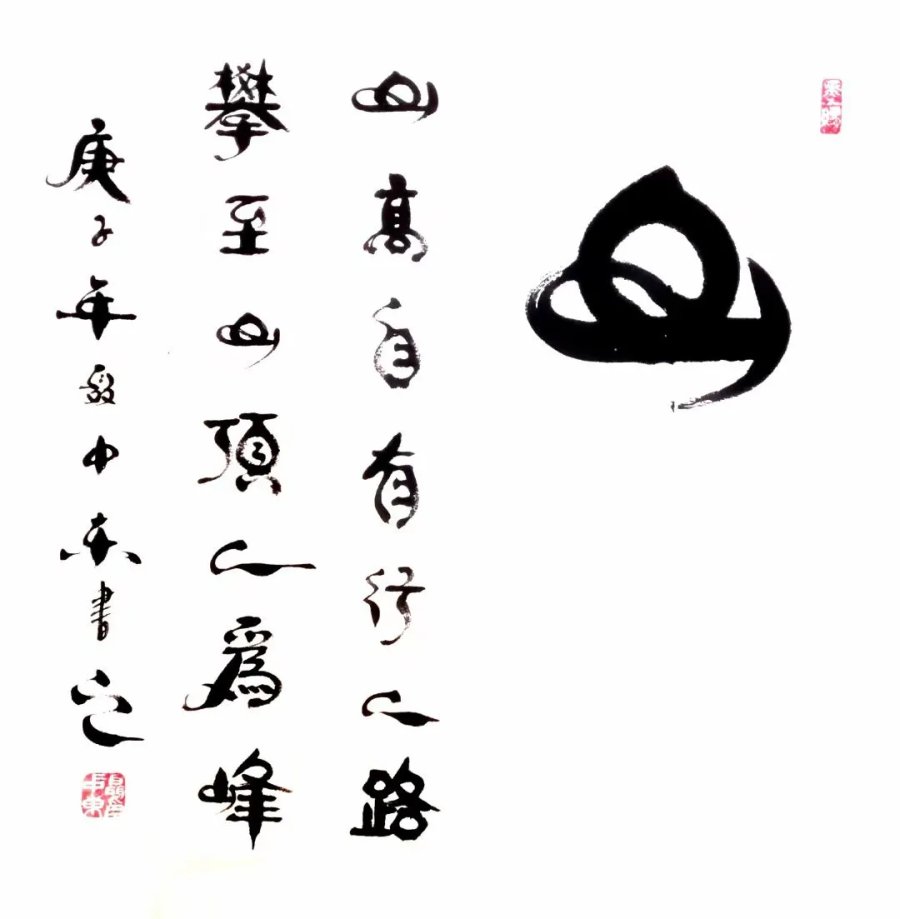 山
山高自有行人路
攀至山頂人爲峰
庚子年中东書之